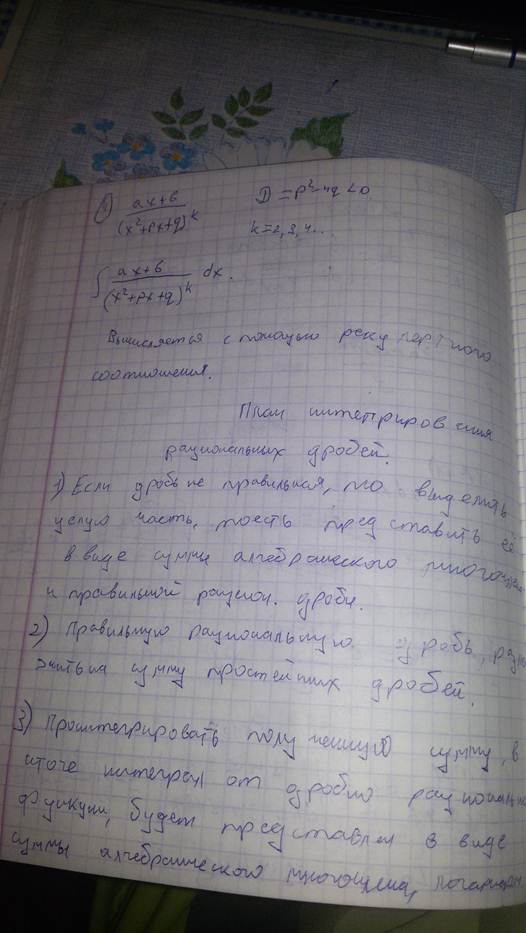 ④ ax+b / (x²+px+q)^k D = p²-4q < 0
k=2,3,4...
∫ ax+b / (x²+px+q)^k dx.
Вычисляется с помощью рекуррентного
соотношения.
План интегрирования
рациональных дробей.
1) Если дробь не правильная, то выделить
целую часть, тоесть представить её
в виде суммы алгебраического многочлена
и правильной рацион. дроби.
2) Правильную рациональную дробь, разло
жить на сумму простейших дробей.
3) Проинтегрировать полученную сумму, в
итоге интеграл от дробно рациональной
функции, будет представлен в виде
суммы алгебраического многочлена, логарифм